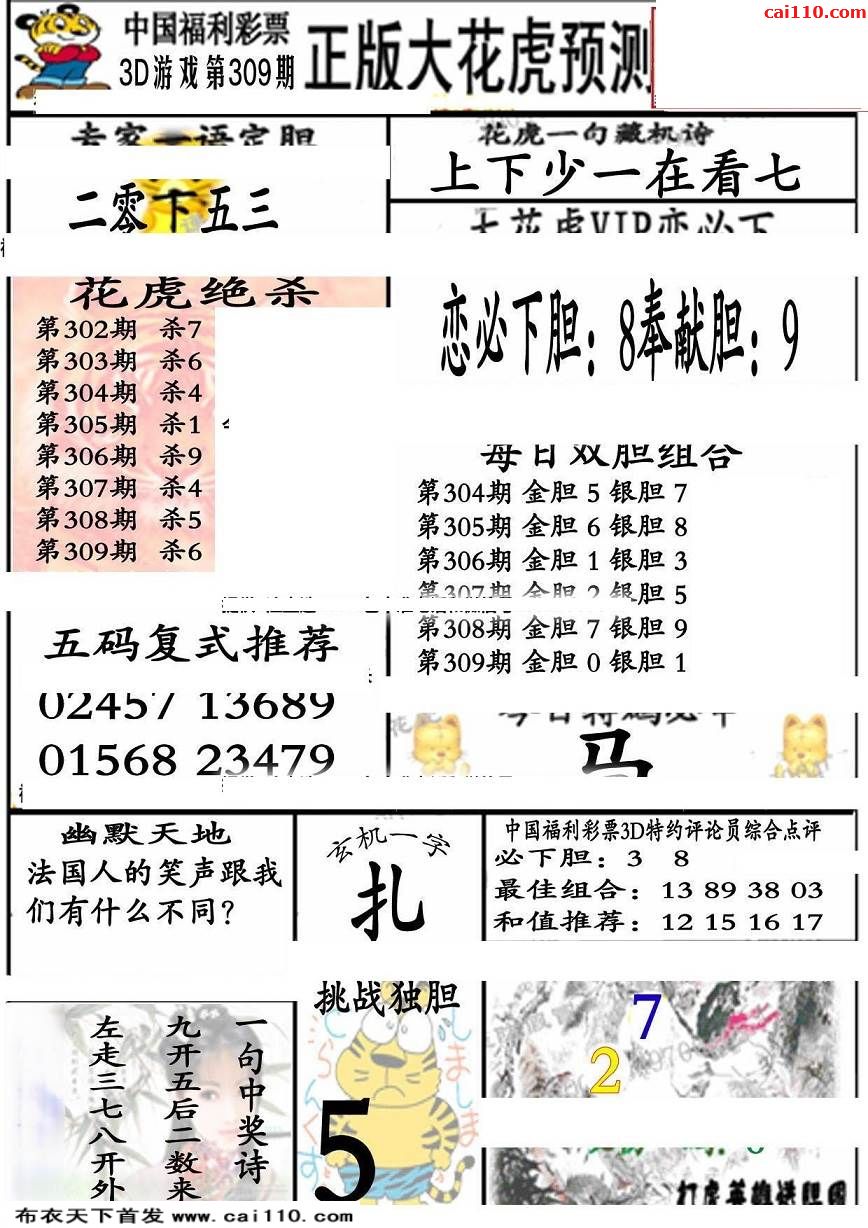 cai110.com
中国福利彩票
3D游戏第309期
正版大花虎预测
专家一语定胆
二零下五三
花虎一句藏机诗
上下少一在看七
七花虎VIP恋必下
恋必下胆：8奉献胆：9
花虎绝杀
第302期 杀7
第303期 杀6
第304期 杀4
第305期 杀1
第306期 杀9
第307期 杀4
第308期 杀5
第309期 杀6
每日双胆组合
第304期 金胆 5 银胆 7
第305期 金胆 6 银胆 8
第306期 金胆 1 银胆 3
第307期 金胆 2 银胆 5
第308期 金胆 7 银胆 9
第309期 金胆 0 银胆 1
五码复式推荐
02457 13689
01568 23479
花虎
今日特码必中
马
幽默天地
法国人的笑声跟我
们有什么不同？
玄机一字
扎
中国福利彩票3D特约评论员综合点评
必下胆：3 8
最佳组合：13 89 38 03
和值推荐：12 15 16 17
一句中奖诗
九开五后二数来
左走三七八开外
挑战独胆
5
7
2
打虎英雄送胆图
布衣天下首发 www.cai110.com